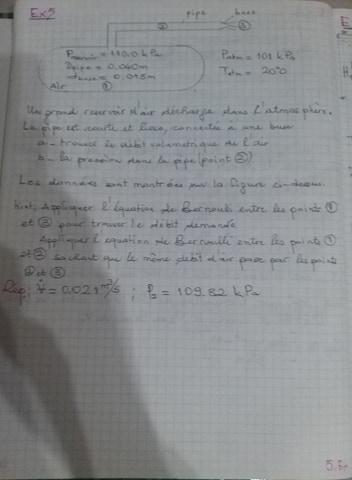 Ex5
pipe buse
② ③
Préservoir = 110.0 kPa Patm = 101 kPa
Dpipe = 0.040m Tatm = 20°C
dbuse = 0.015m
Air ①
Un grand reservoir d'air décharge dans l'atmosphère.
La pipe est courte et lisse, connectée à une buse
a - trouver le débit volumetrique de l'air
b - la pression dans la pipe (point ②)
Les données sont montrées sur la figure ci-dessus.
Hint: Appliquer l'équation de Bernoulli entre les points ①
et ③ pour trouver le débit demandé
Appliquer l'equation de Bernoulli entre les points ①
et ② sachant que le même debit d'air passe par les points
② et ③
Rép: V̇ = 0.021 m³/s ; P₂ = 109.82 kPa